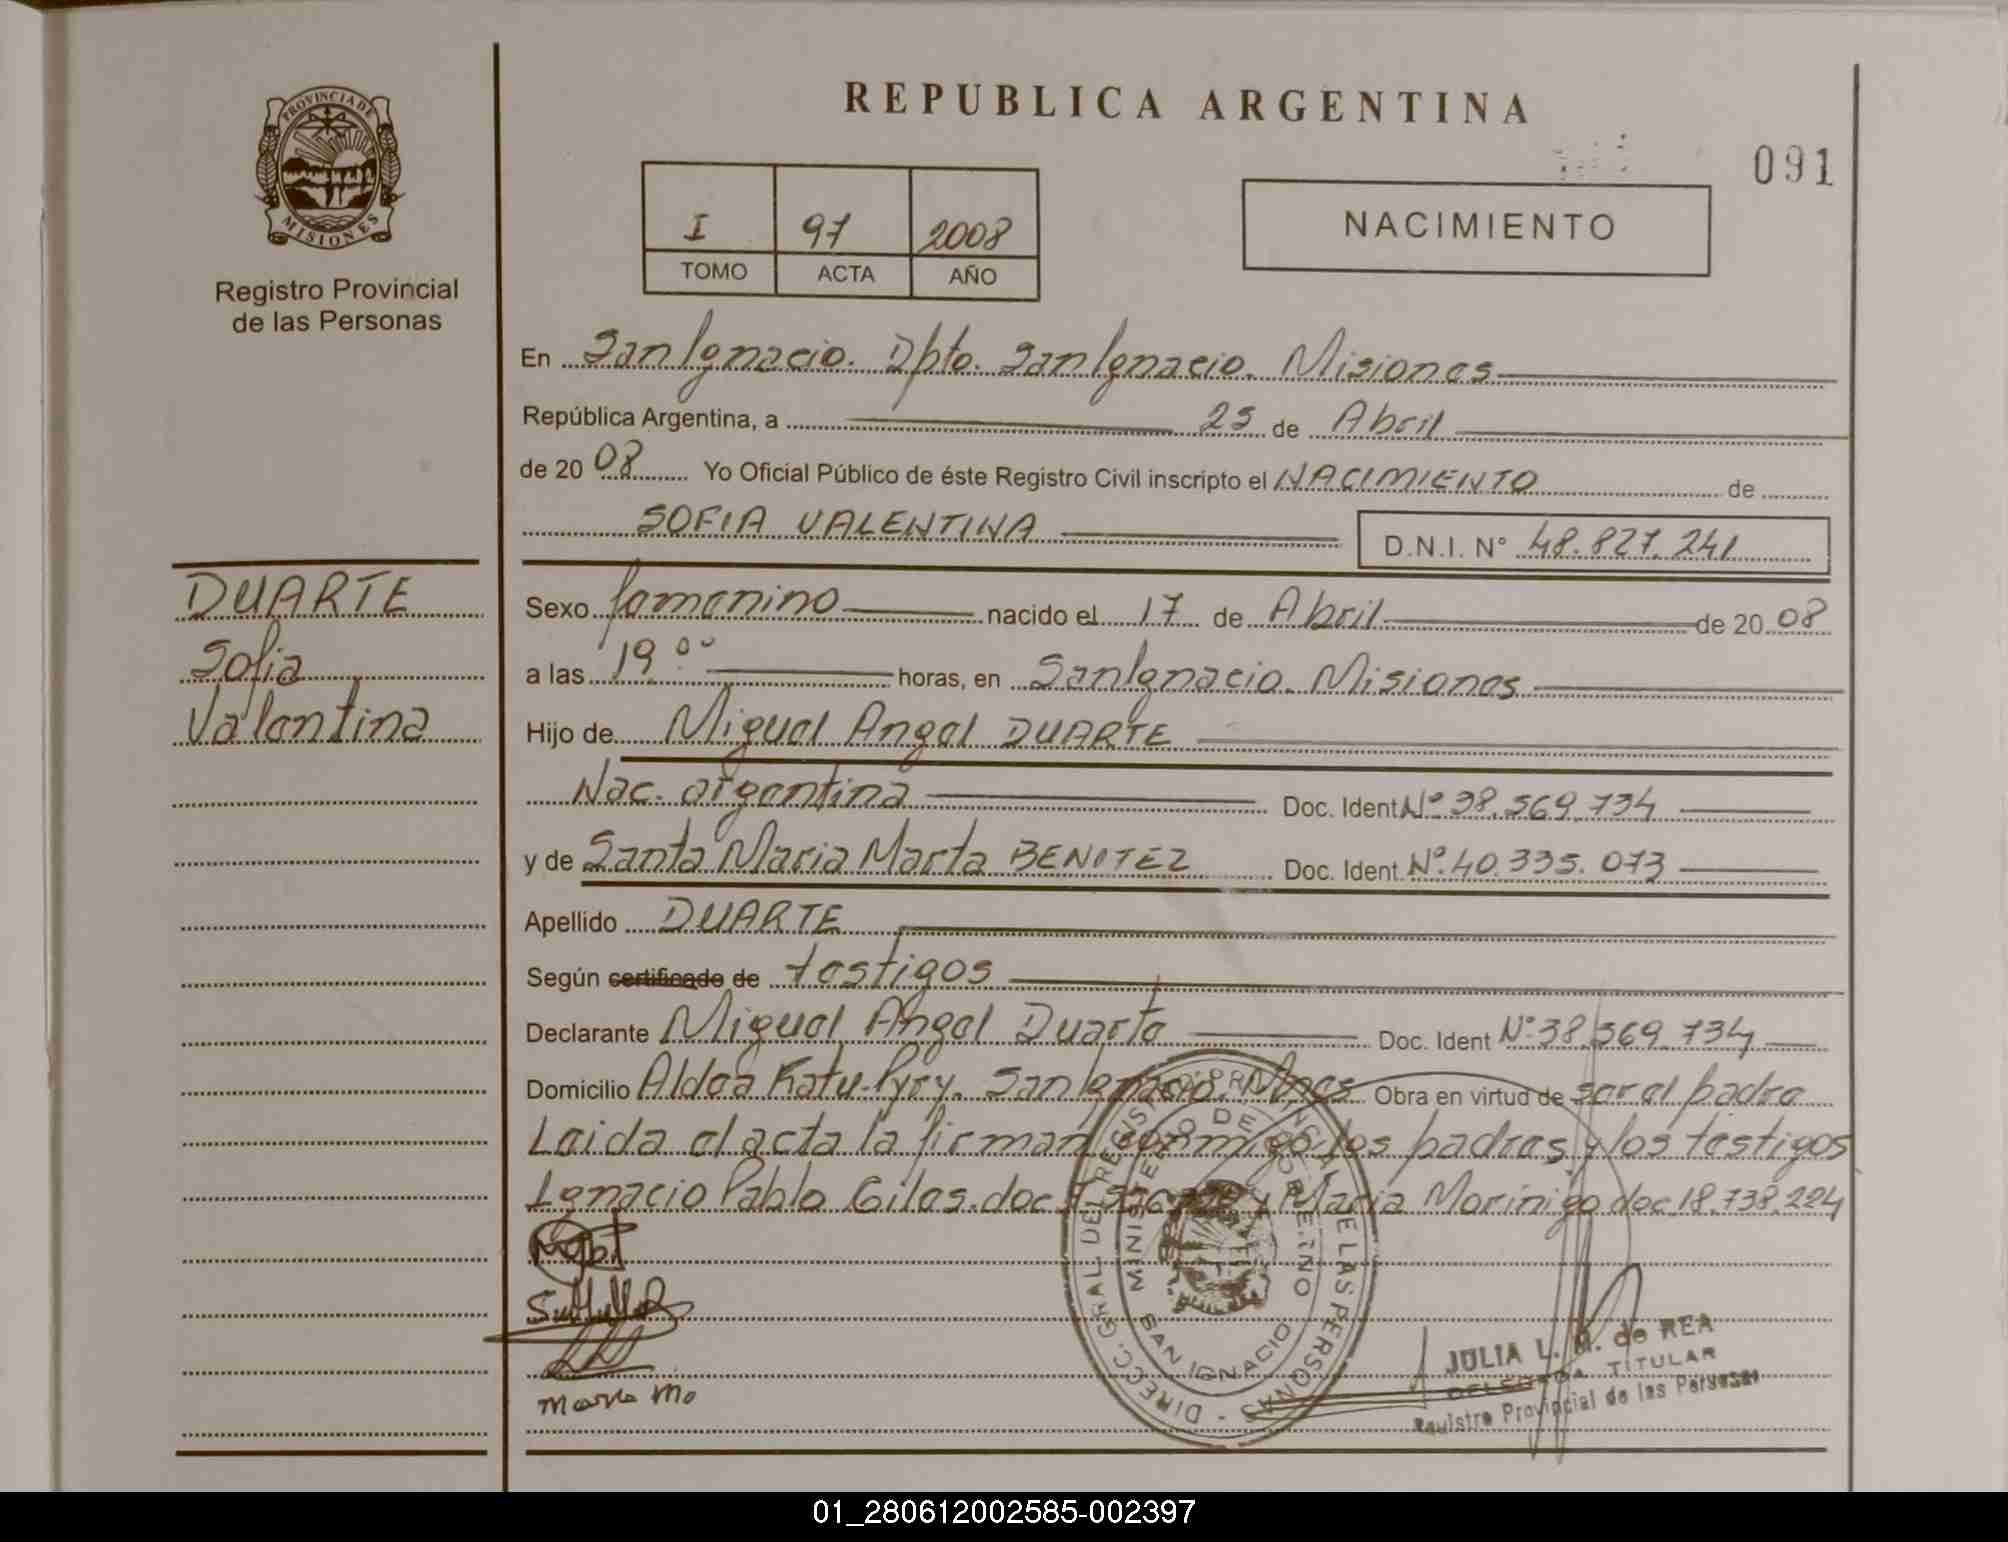 REPUBLICA ARGENTINA
091
PROVINCIA DE
MISIONES
Registro Provincial
de las Personas
I 97 2008
TOMO ACTA AÑO
NACIMIENTO
En San Ignacio. Dpto. San Ignacio. Misiones
República Argentina, a 25 de Abril
de 2008 Yo Oficial Público de éste Registro Civil inscripto el NACIMIENTO de
SOFIA VALENTINA D.N.I. N° 48.827.241
DUARTE
Sofia
Valentina
Sexo femenino nacido el 17 de Abril de 2008
a las 19°° horas, en San Ignacio. Misiones
Hijo de Miguel Angel DUARTE
Nac. argentina Doc. Ident N° 38.569.734
y de Santa Maria Marta BENITEZ Doc. Ident. N° 40.335.073
Apellido DUARTE
Según certificado de testigos
Declarante Miguel Angel Duarte Doc. Ident N° 38.569.734
Domicilio Aldea Katu-Pyry. San Ignacio. Mnes Obra en virtud de ser el padre
Leida el acta la firman conmigo los padres y los testigos
Ignacio Pablo Giles. doc y Maria Morinigo doc. 18.738.224
Maria Mo
DIRECC. GRAL. DEL REGISTRO PROVINCIAL DE LAS PERSONAS
MINISTERIO DE GOBIERNO
SAN IGNACIO
JULIA L. M. de REA
DELEGADA TITULAR
Registro Provincial de las Personas
01_280612002585-002397